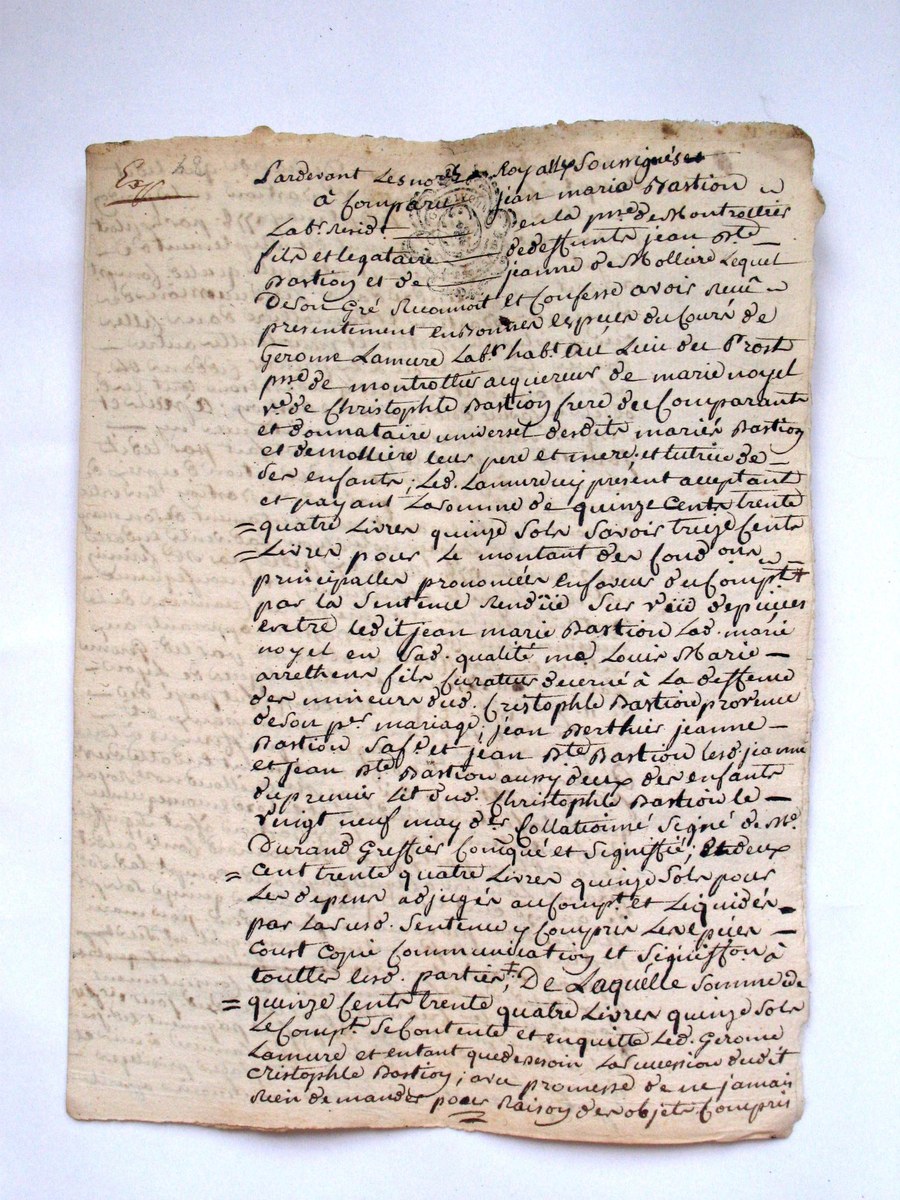 Exp
Pardevant Les no.res Royaux Soussignés
à Comparu jean marie Bastion
Lab.r resid. en la p.sse de Montrottier
fils et legataire de deffunts jean B.te
Bastion et de jeanne de Molliere Lequel
De son Gré Reconnoit et Confesse avoir Receu
presentement en bonnes especes du Cours de
Gerome Lamure Lab.r hab.t au Lieu du Prost
p.sse de montrottier acquereur de marie noyel
v.e de Christophle Bastion frere du Comparant
et donnataire universel desdits mariés Bastion
et demolliere leurs pere et mere, et tutrice de
ses enfants; Led. Lamure icy present acceptant
et payant La somme de quinze Cents trente
quatre Livres quinze Sols Savoir treize Cents
Livres pour Le montant des cond.ons
principalles prononcées en faveur du Comp.t
par la Sentence Rendüe Sur vüe de pieces
entre ledit jean marie Bastion Lad. marie
noyel en Sad. qualité me. Louis Marie
arrethens fils Curateur decerné à La deffense
des mineurs dud. Cristophle Bastion provenus
de son p.er mariage; jean Berthier jeanne
Bastion Sa f.e et jean B.te Bastion lesd. jeanne
et jean B.te Bastion aussy deux des enfants
du premier Lit dud. Christophle Bastion le
vingt neuf may d.er Collationné Signé de M.e
Durand Greffier Com̃qué et Signiffié; Et deux
Cent trente quatre Livres quinze Sols pour
Les depens adjugés au Comp.t et Liquidés
par La susd. Sentence y Compris Les epices
Coust Copie Communication et Signiff.on à
touttes lesd. parties; De Laquelle somme de
quinze Cents trente quatre Livres quinze Sols
Le Comp.t Se Contente et en quitte Led. Gerome
Lamure et en tant que de besoin La succession dudit
Cristophle Bastion; avec promesse de ne jamais
Rien demander pour Raison des objets Compris